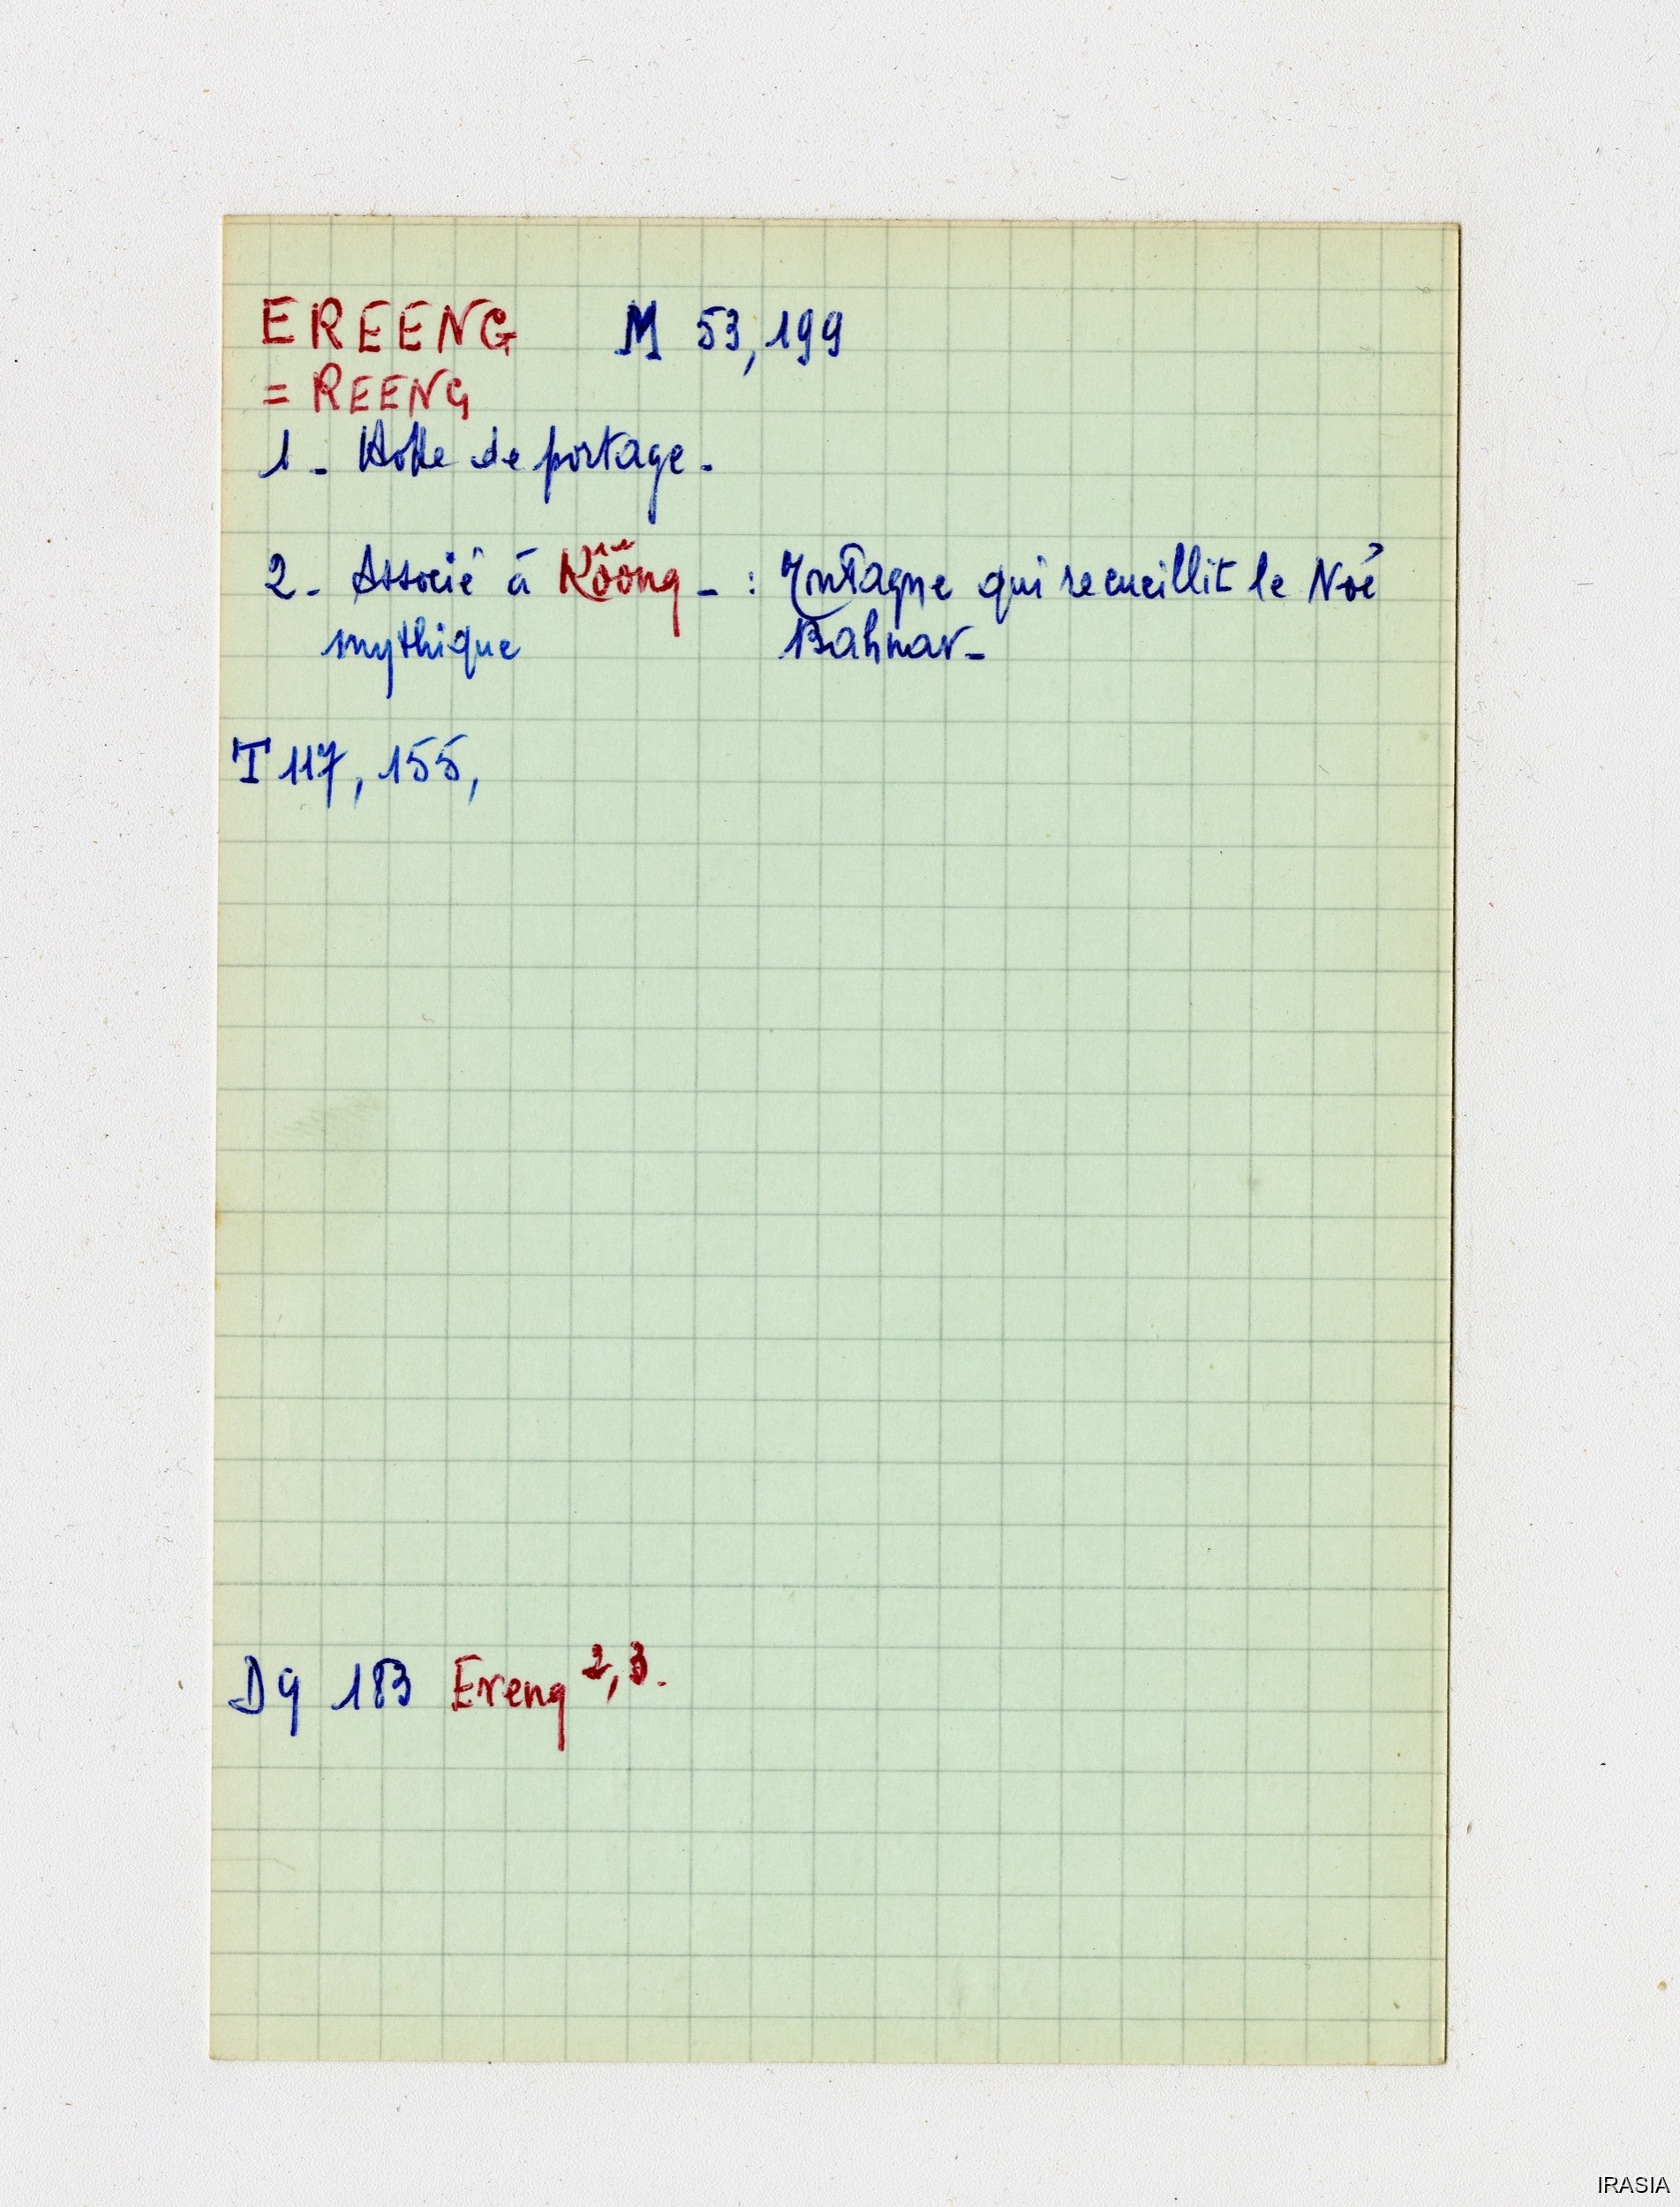 EREENG M 53, 199
= REENG
1 - Hotte de portage -
2 - Associé à Rôông - : Montagne qui recueillit le Noé
mythique Bahnar -
T 117, 155,
D9 183 Ereng 2, 3.
IRASIA